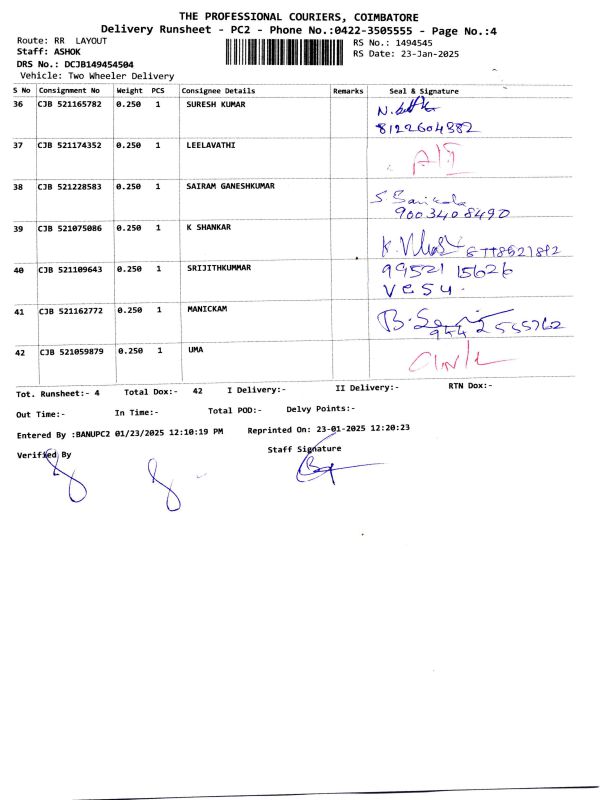 THE PROFESSIONAL COURIERS, COIMBATORE
Delivery Runsheet - PC2 - Phone No.:0422-3505555 - Page No.:4
Route: RR LAYOUT
RS No.: 1494545
Staff: ASHOK
RS Date: 23-Jan-2025
DRS No.: DCJB149454504
Vehicle: Two Wheeler Delivery
S No Consignment No Weight PCS Consignee Details Remarks Seal & Signature
36 CJB 521165782 0.250 1 SURESH KUMAR
8122604982
37 CJB 521174352 0.250 1 LEELAVATHI
38 CJB 521228583 0.250 1 SAIRAM GANESHKUMAR
9003408490
39 CJB 521075086 0.250 1 K SHANKAR
40 CJB 521109643 0.250 1 SRIJITHKUMMAR 99521 15626
41 CJB 521162772 0.250 1 MANICKAM
42 CJB 521059879 0.250 1 UMA
Tot. Runsheet:- 4 Total Dox:- 42 I Delivery:- II Delivery:- RTN Dox:-
Out Time:- In Time:- Total POD:- Delvy Points:-
Entered By :BANUPC2 01/23/2025 12:10:19 PM Reprinted On: 23-01-2025 12:20:23
Verified By Staff Signature